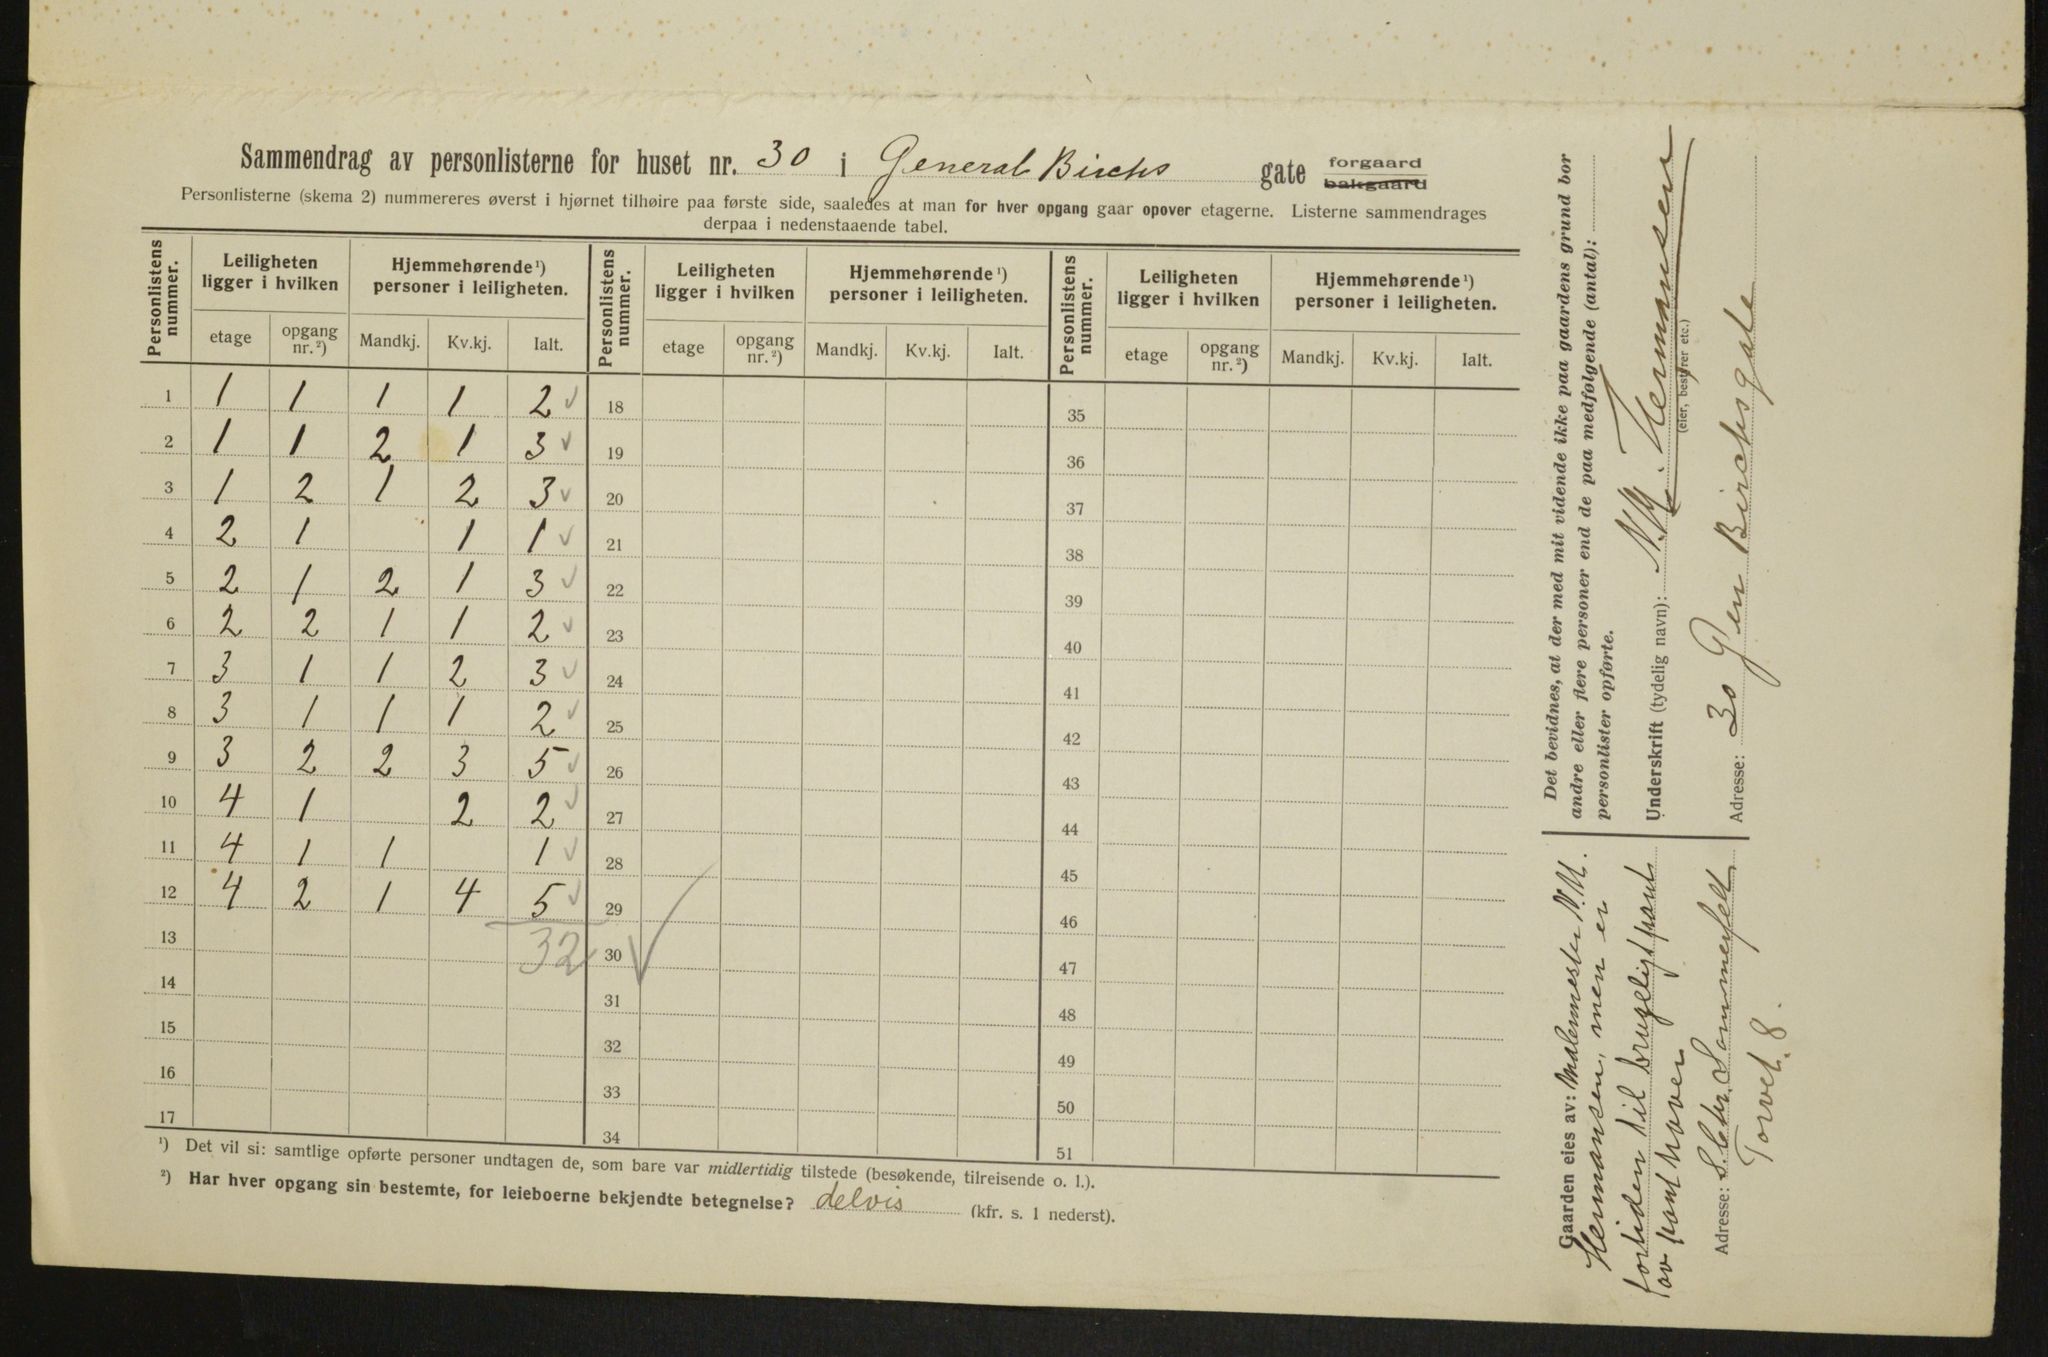 Sammendrag av personlisterne for huset nr. 30 i General Birchs gate forgaard bakgaard
Personlisterne (skema 2) nummereres øverst i hjørnet tilhøire paa første side, saaledes at man for hver opgang gaar opover etagerne. Listerne sammendrages
derpaa i nedenstaaende tabel.
Personlistens nummer. Leiligheten ligger i hvilken Hjemmehørende ¹) personer i leiligheten. Personlistens nummer. Leiligheten ligger i hvilken Hjemmehørende ¹) personer i leiligheten. Personlistens nummer. Leiligheten ligger i hvilken Hjemmehørende ¹) personer i leiligheten.
etage opgang nr. ²) Mandkj. Kv.kj. Ialt. etage opgang nr. ²) Mandkj. Kv.kj. Ialt. etage opgang nr. ²) Mandkj. Kv.kj. Ialt.
1 1 1 1 1 2 ✓ 18 35
2 1 1 2 1 3 ✓ 19 36
3 1 2 1 2 3 ✓ 20 37
4 2 1 1 1 ✓ 21 38
5 2 1 2 1 3 ✓ 22 39
6 2 2 1 1 2 ✓ 23 40
7 3 1 1 2 3 ✓ 24 41
8 3 1 1 1 2 ✓ 25 42
9 3 2 2 3 5 ✓ 26 43
10 4 1 2 2 ✓ 27 44
11 4 1 1 1 ✓ 28 45
12 4 2 1 4 5 ✓ 29 46
13 32 ✓ 30 47
14 31 48
15 32 49
16 33 50
17 34 51
¹) Det vil si: samtlige opførte personer undtagen de, som bare var midlertidig tilstede (besøkende, tilreisende o. l.).
²) Har hver opgang sin bestemte, for leieboerne bekjendte betegnelse? delvis (kfr. s. 1 nederst).
Det bevidnes, at der med mit vidende ikke paa gaardens grund bor
andre eller flere personer end de paa medfølgende (antal):
personlister opførte.
Underskrift (tydelig navn): N.M. Hermansen
(eier, bestyrer etc.)
Adresse: 30 Gen Birchsgate
Gaarden eies av: Malermester N.M.
Hermansen, men er
fortiden til brugeligt pant
av panthaver
Adresse: S. Chr. Sommerfelt
Torvet 8.